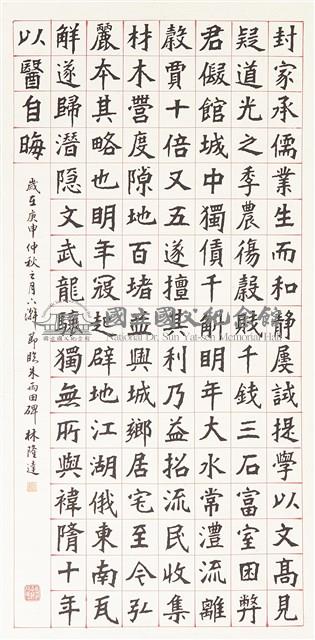 封家承儒業生而和靜屢試提學以文高見
疑道光之季農傷穀賤千錢三石富室困弊
君儗館城中獨債千斛明年大水常澧流離
穀賈十倍又五遂擅其利乃益招流民收集
材木營度隙地百堵並興城鄉居宅至今弘
麗本其略也明年寇起辟地江湖俄東南瓦
觧遂歸潛隐文武龍驤獨無所與褘隋十年
以醫自晦
歲在庚申仲秋之月 節臨朱雨田碑 林隆達
國立國父紀念館
National Dr. Sun Yat-sen Memorial Hall